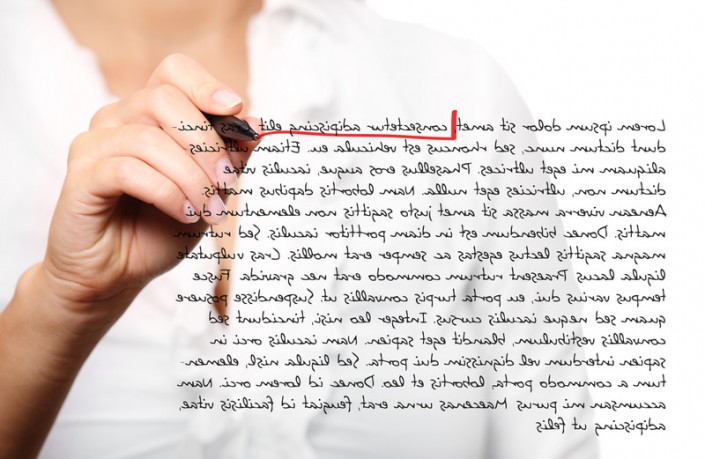 Lorem ipsum dolor sit amet consectetur adipiscing elit cras tinci-
dunt dictum nunc, sed rhoncus est vehicula eu. Etiam ultricies
aliquam mi eget ultrices. Phasellus eros augue, iaculis vitae
dictum non, ultricies eget nulla. Nam lobortis dapibus mattis.
Aenean viverra massa sit amet justo sagittis non elementum dui
mattis. Donec bibendum est in diam porttitor iaculis. Sed rutrum
magna sagittis lectus egestas ac semper erat mollis. Cras vulputate
ligula lacus Praesent rutrum commodo erat nec gravida. Fusce
tempus varius dui, eu porta turpis convallis ut Suspendisse posuere
quam sed neque iaculis cursus. Integer leo nisi, tincidunt sed
convallis vestibulum, blandit eget sapien. Nam iaculis orci in
sapien interdum vel dignissim dui porta. Sed ligula nisl, elemen-
tum a commodo porta, lobortis et leo. Donec id lorem orci. Nam
accumsan mi purus Maecenas urna erat, feugiat id facilisis vitae,
adipiscing ut felis